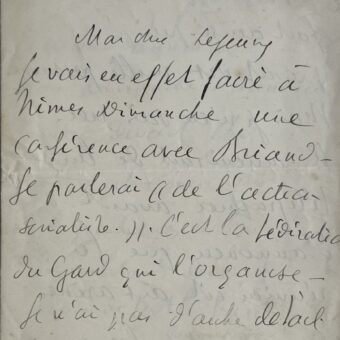 Mon cher Lejeune
je vais en effet faire à
Nîmes Dimanche une
conférence avec Briand –
Je parlerai « de l'action
socialiste. » C'est la fédération
du Gard qui l'organise –
Je n'ai pas d'autre détail